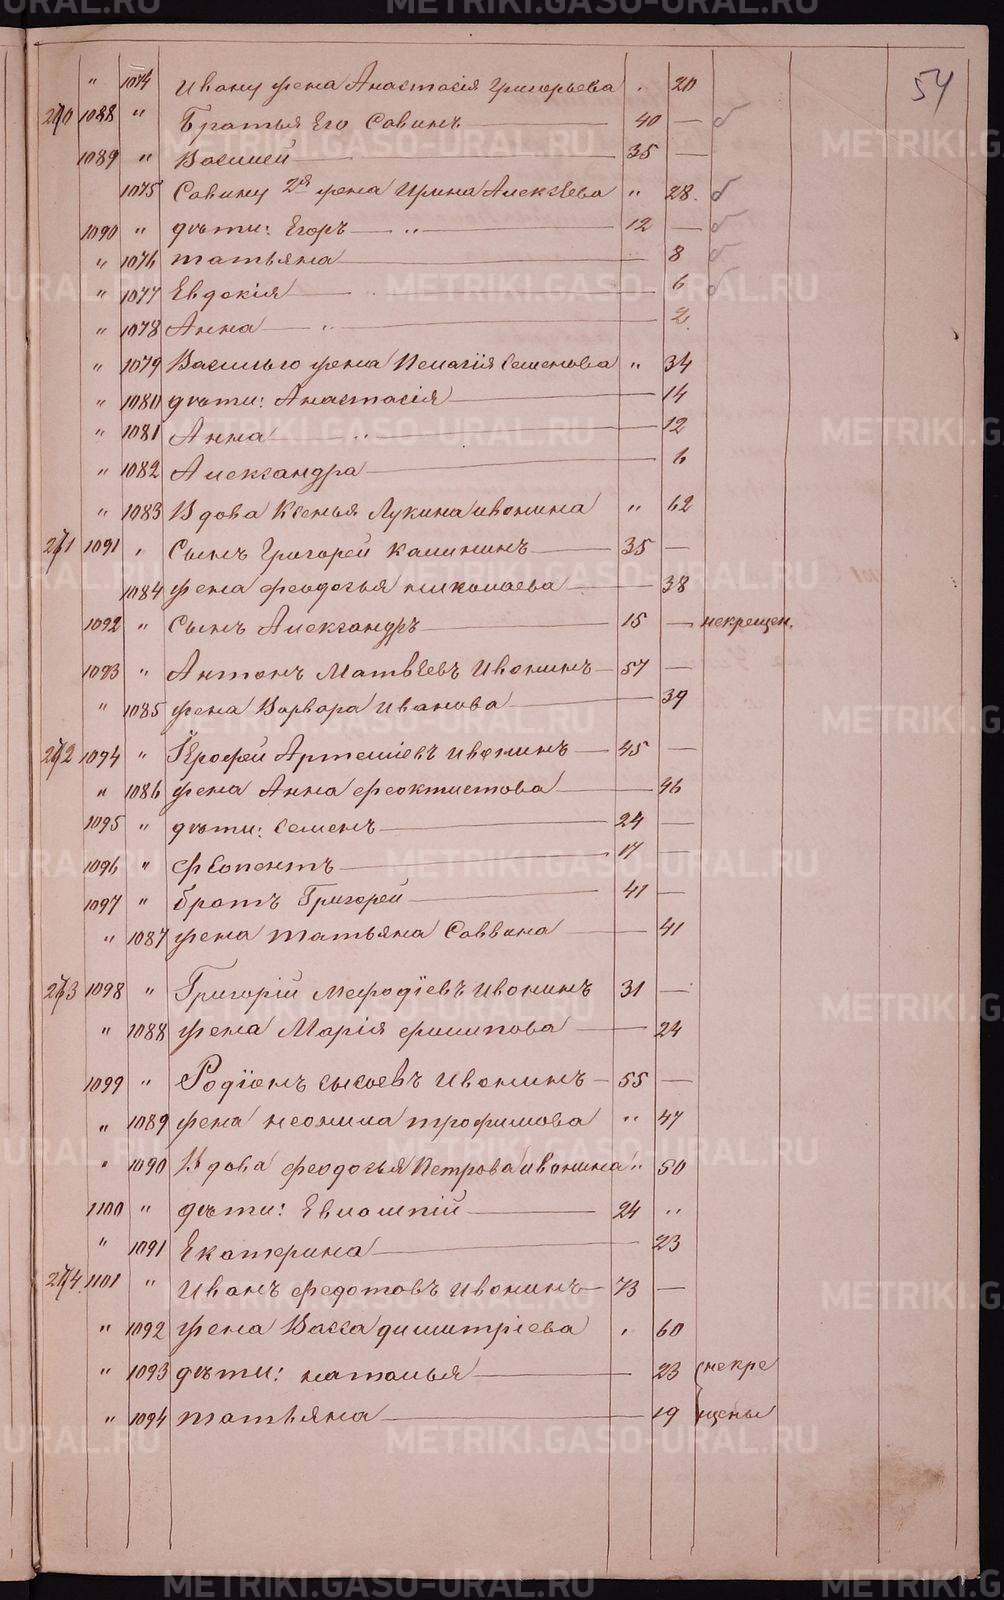 54
" 1074 Ивану жена Анастасія Григорьева " 20
270 1088 " Братья Его Савинъ 40 — б
1089 " Василей 35 —
1075 Савину 2я жена Ирина Алексѣева " 28 б
1090 " дѣти: Егоръ 12 — б
" 1076 татьяна 8 б
" 1077 Евдокія 6 б
" 1078 Анна 2
" 1079 Василью жена Пелагія Семенова " 34
" 1080 дѣти: Анастасія 14
" 1081 Анна 12
" 1082 Александра 6
" 1083 Вдова Ксенья Лукина ивонина " 62
271 1091 " Сынъ Григорей Калининъ 35 —
1084 жена феодосья николаева 38
1092 " Сынъ Александръ 15 — некрещен.
1093 " Антонъ Матвѣевъ Ивонинъ 57 —
" 1085 жена Варвара Иванова 39
272 1094 " Ерофей Артеміевъ ивонинъ 45 —
" 1086 жена Анна феоктистова 46
1095 " дѣти: Семенъ 24 —
1096 " фЕопентъ 17 —
1097 " братъ Григорей 41 —
" 1087 жена татьяна Саввина 41
273 1098 " Григорій Мефодіевъ Ивонинъ 31 —
" 1088 жена Марія филипова 24
1099 " Родіонъ сысоевъ Ивонинъ 55 —
" 1089 жена неонила трофимова " 47
" 1090 Вдова феодосья Петрова ивонина " 50
1100 " дѣти: Евлампій 24 "
" 1091 Екатерина 23
274 1101 " Иванъ федотовъ Ивонинъ 73 —
" 1092 жена Васса димитріева " 60
" 1093 дѣти: наталья 23 некре
" 1094 татьяна 19 щены
METRIKI.GASO-URAL.RU